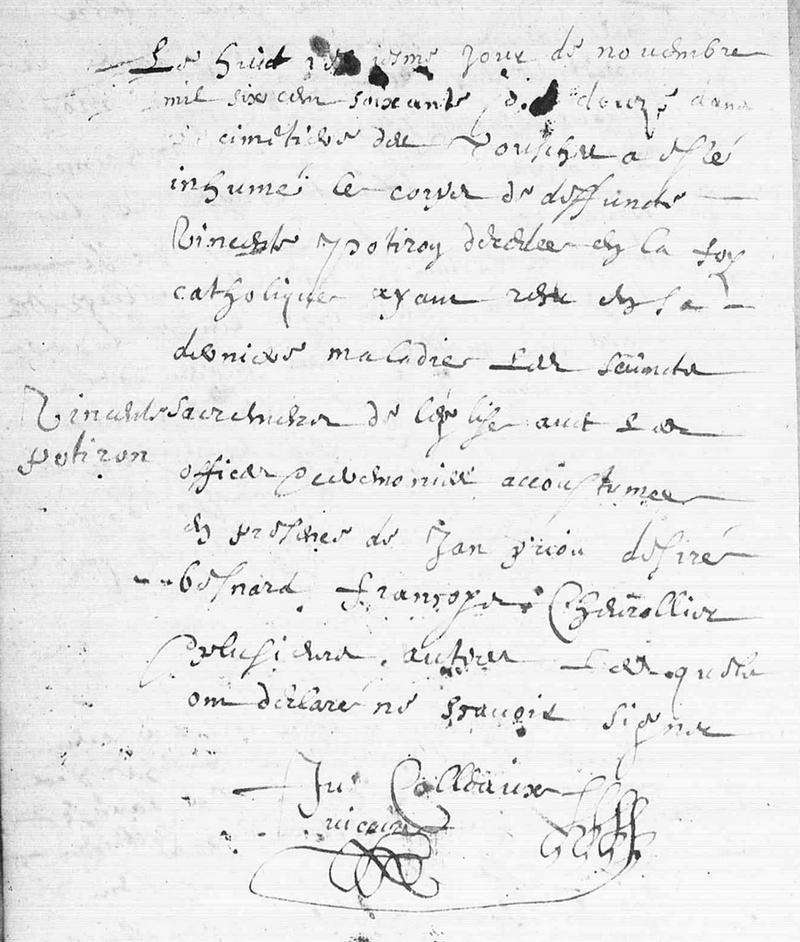 Le huict iesme jour de novembre
mil six cen soixante douze dans
cimetiere des Tousche a esté
inhumé le corps de deffuncte
Vincente Potiron decedee en la foy
catholique ayant receu en sa
derniere maladie Les saincts
Vincente sacrements de leglise avec Les
potiron
offices & ceremonies accoustumees
en presence de Jan priou desiré
besnard françoys Chevrollier
& plusieurs autres Lesquels
ont declaré ne sçavoir signer
Ju Colleaux
vicaire